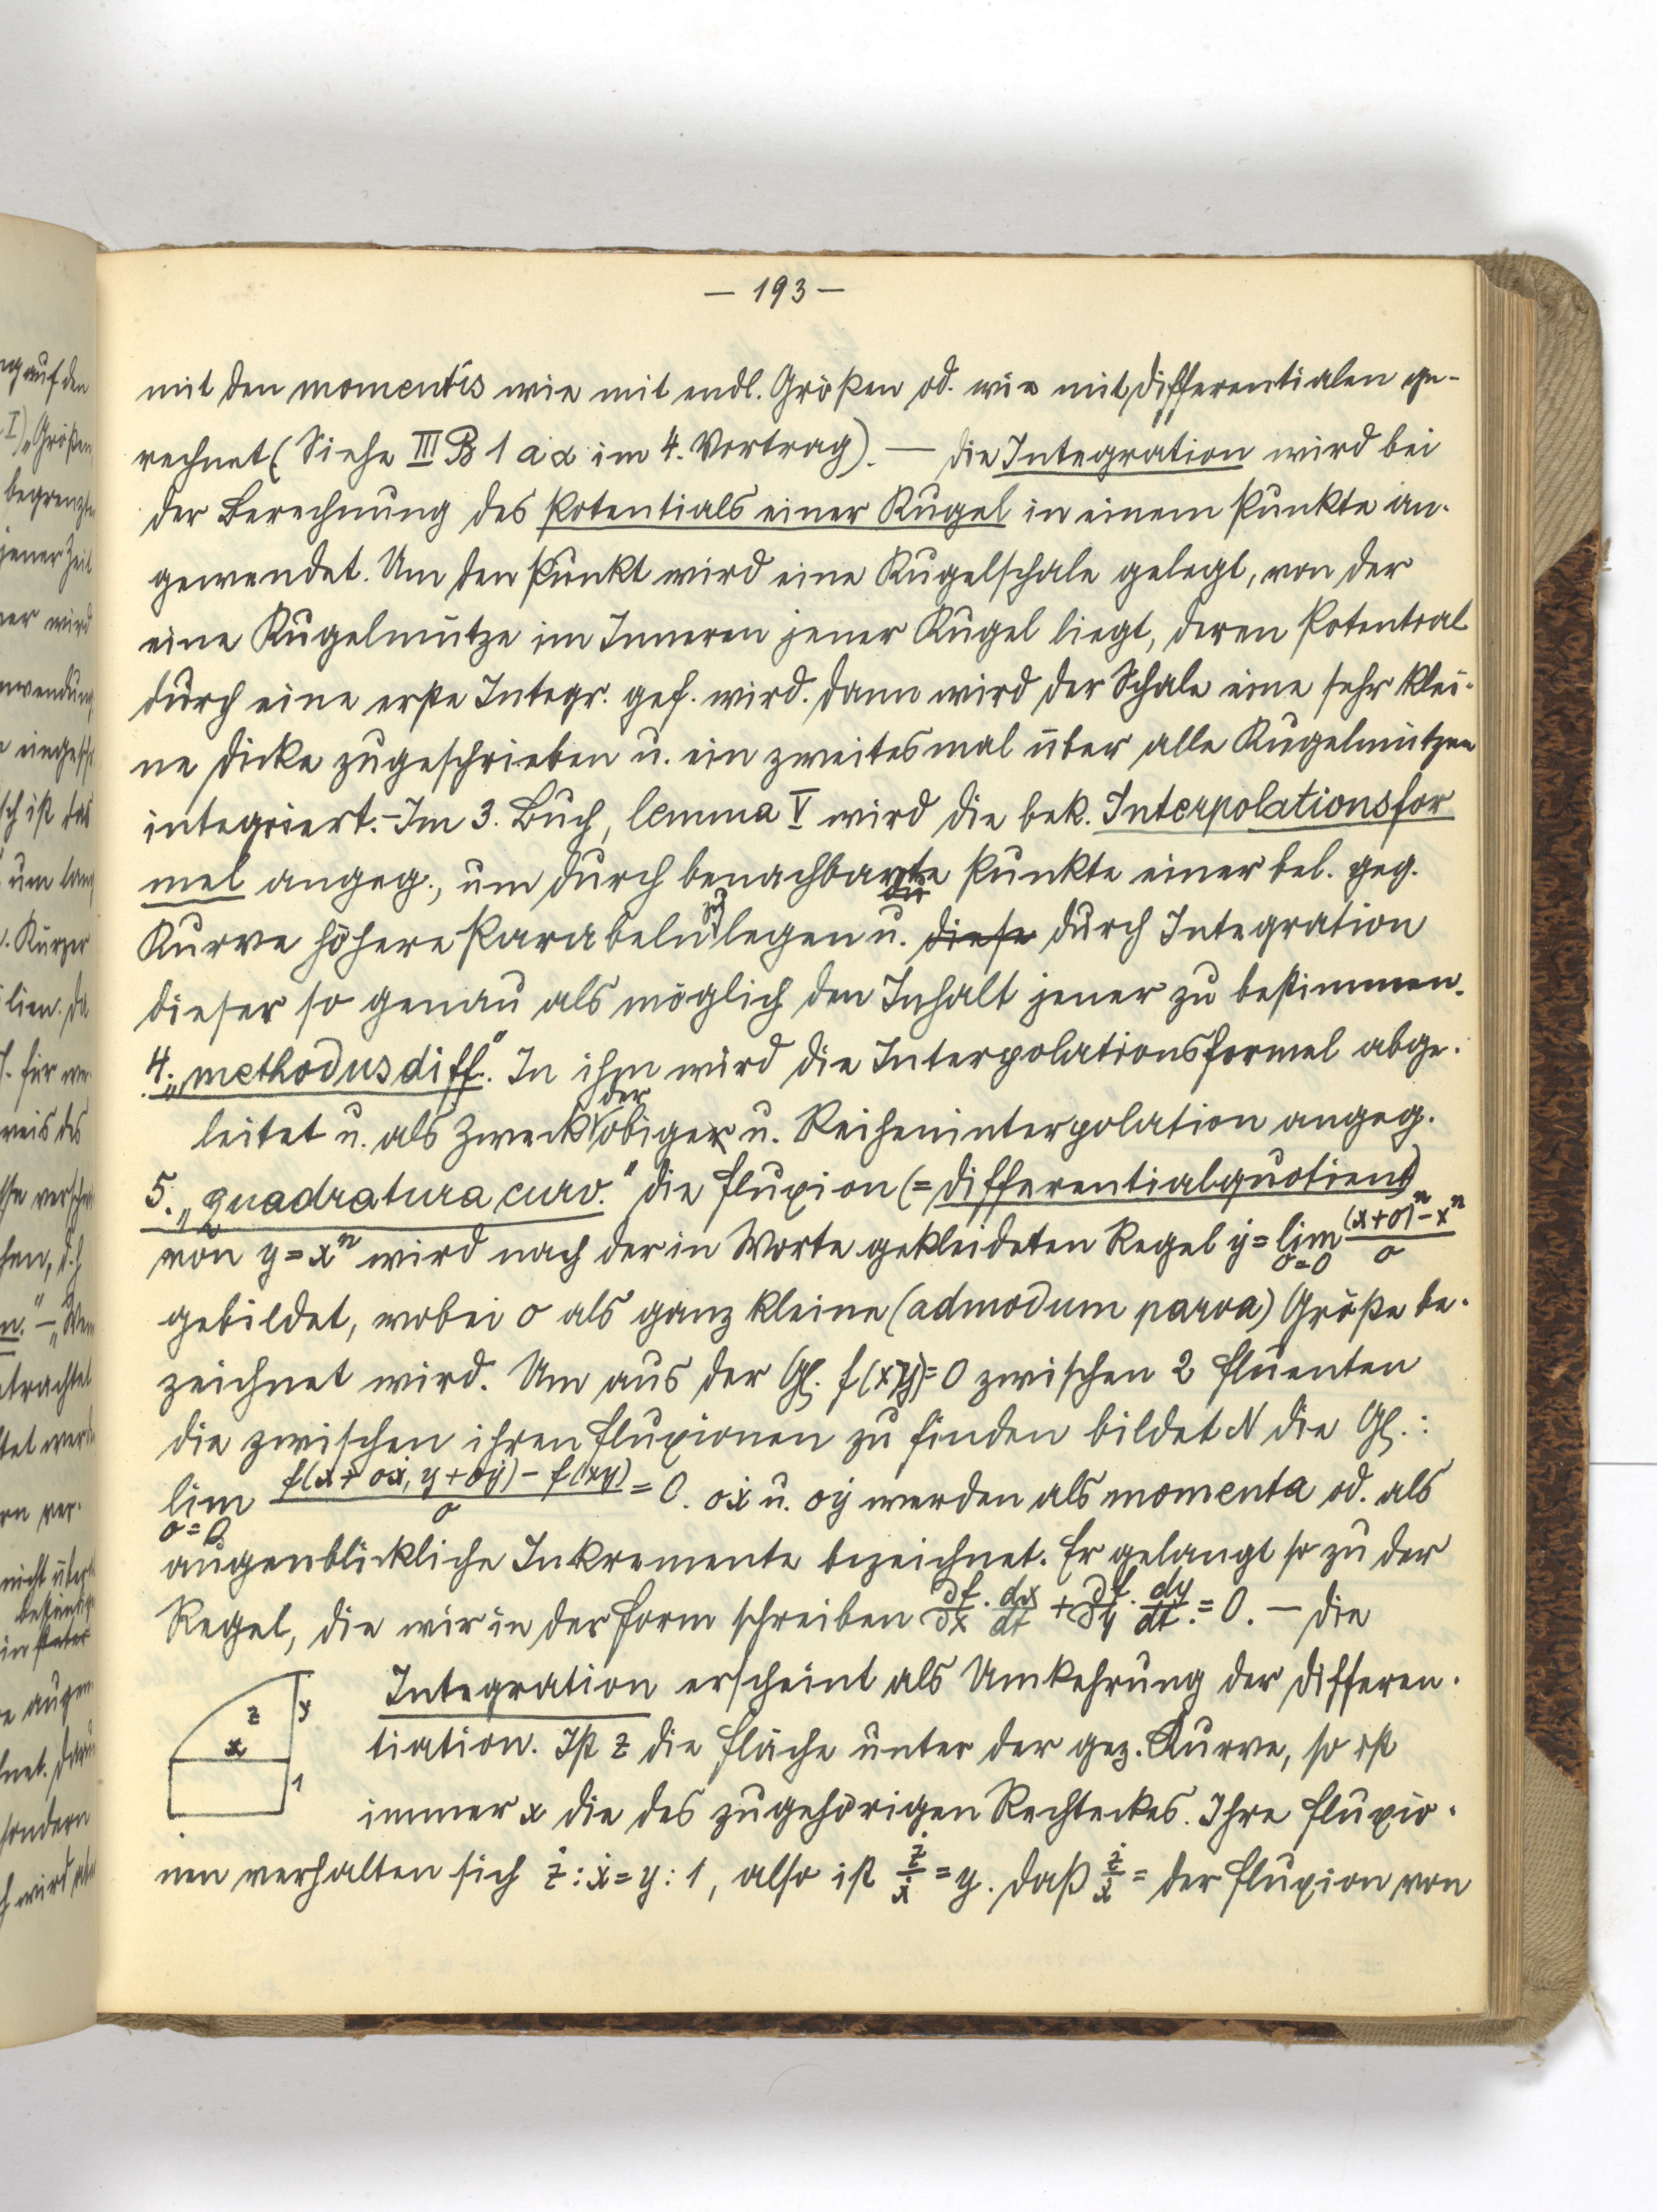 — 193 —
mit den momentis wie mit endl. Größen od. wie mit Differentialen ge-
rechnet (Siehe III B 1 a α im 4. Vortrag). — Die Integration wird bei
der Berechnung des Potentials einer Kugel in einem Punkte an-
gewendet. Um den Punkt wird eine Kugelschale gelegt, von der
eine Kugelmütze im Inneren jener Kugel liegt, deren Potential
durch eine erste Integr. gef. wird. Dann wird der Schale eine sehr klei-
ne Dicke zugeschrieben u. ein zweitesmal über alle Kugelmützen
integriert. – Im 3. Buch, lemma V wird die bek. Interpolationsfor
mel angeg., um durch benachbarte Punkte einer bel. geg.
Kurve höhere Parabeln zu legen u. diese durch Integration
dieser so genau als möglich den Inhalt jener zu bestimmen.
4. „methodus diff." In ihm wird die Interpolationsformel abge-
leitet u. als Zweck der obige u. Reiheninterpolation angeg.
5. „quadratura curv." Die Fluxion (= Differentialquotient)
von y = xⁿ wird nach der in Worte gekleideten Regel ẏ = lim o=0 ((x+o)ⁿ - xⁿ)/o
gebildet, wobei o als ganz kleine (admodum parva) Größe be-
zeichnet wird. Um aus der Gl. f(x,y) = 0 zwischen 2 Fluenten
die zwischen ihren Fluxionen zu finden bildet N die Gl.:
lim o=0 (f(x + oẋ, y + oẏ) - f(xy))/o = 0. oẋ u. oẏ werden als momenta od. als
augenblickliche Inkremente bezeichnet. Er gelangt so zu der
Regel, die wir in der Form schreiben ∂f/∂x · dx/dt + ∂f/∂y · dy/dt = 0. — Die
Integration erscheint als Umkehrung der Differen-
z y
x
1
tiation. Ist z die Fläche unter der gez. Kurve, so ist
immer x die des zugehörigen Rechteckes. Ihre Fluxio-
nen verhalten sich ż : ẋ = y : 1, also ist ż/ẋ = y. Daß ż/ẋ = der Fluxion von